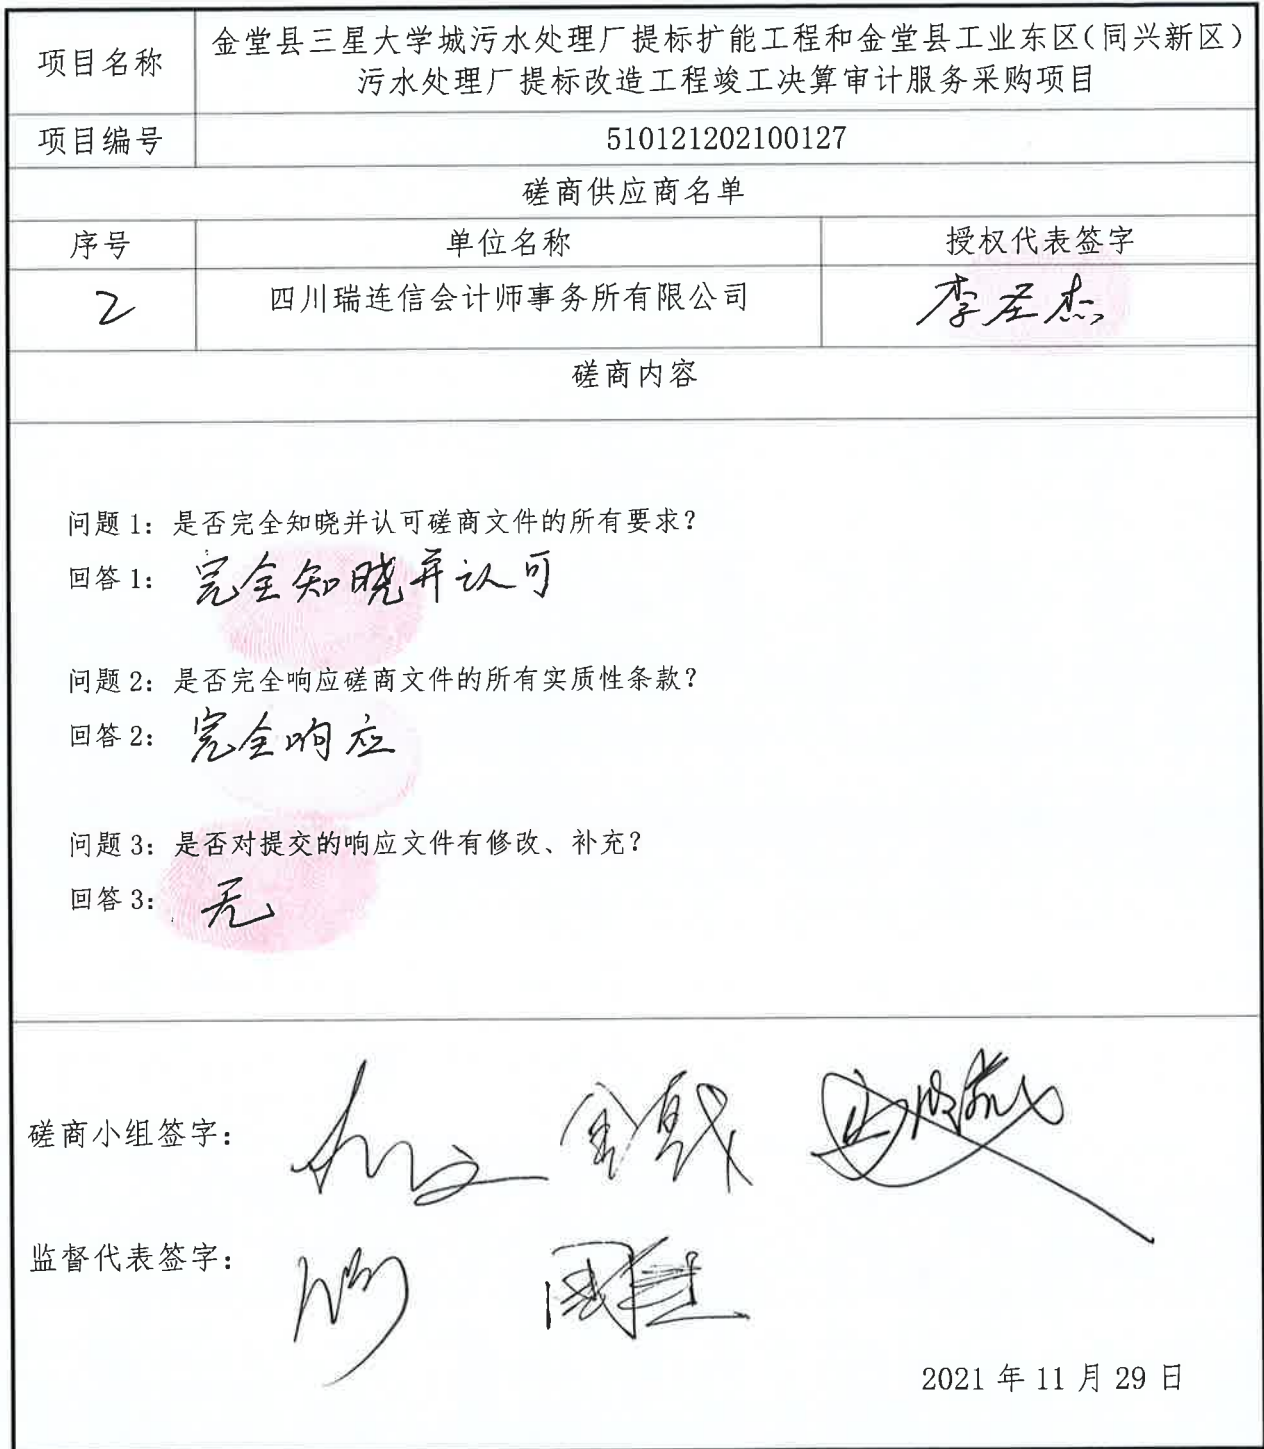 项目名称
金堂县三星大学城污水处理厂提标扩能工程和金堂县工业东区(同兴新区)
污水处理厂提标改造工程竣工决算审计服务采购项目
项目编号
510121202100127
磋商供应商名单
序号
单位名称
授权代表签字
2
四川瑞连信会计师事务所有限公司
磋商内容
问题1：是否完全知晓并认可磋商文件的所有要求？
回答1：完全知晓并认可
问题2：是否完全响应磋商文件的所有实质性条款？
回答2：完全响应
问题3：是否对提交的响应文件有修改、补充？
回答3：无
磋商小组签字：
监督代表签字：
2021年11月29日